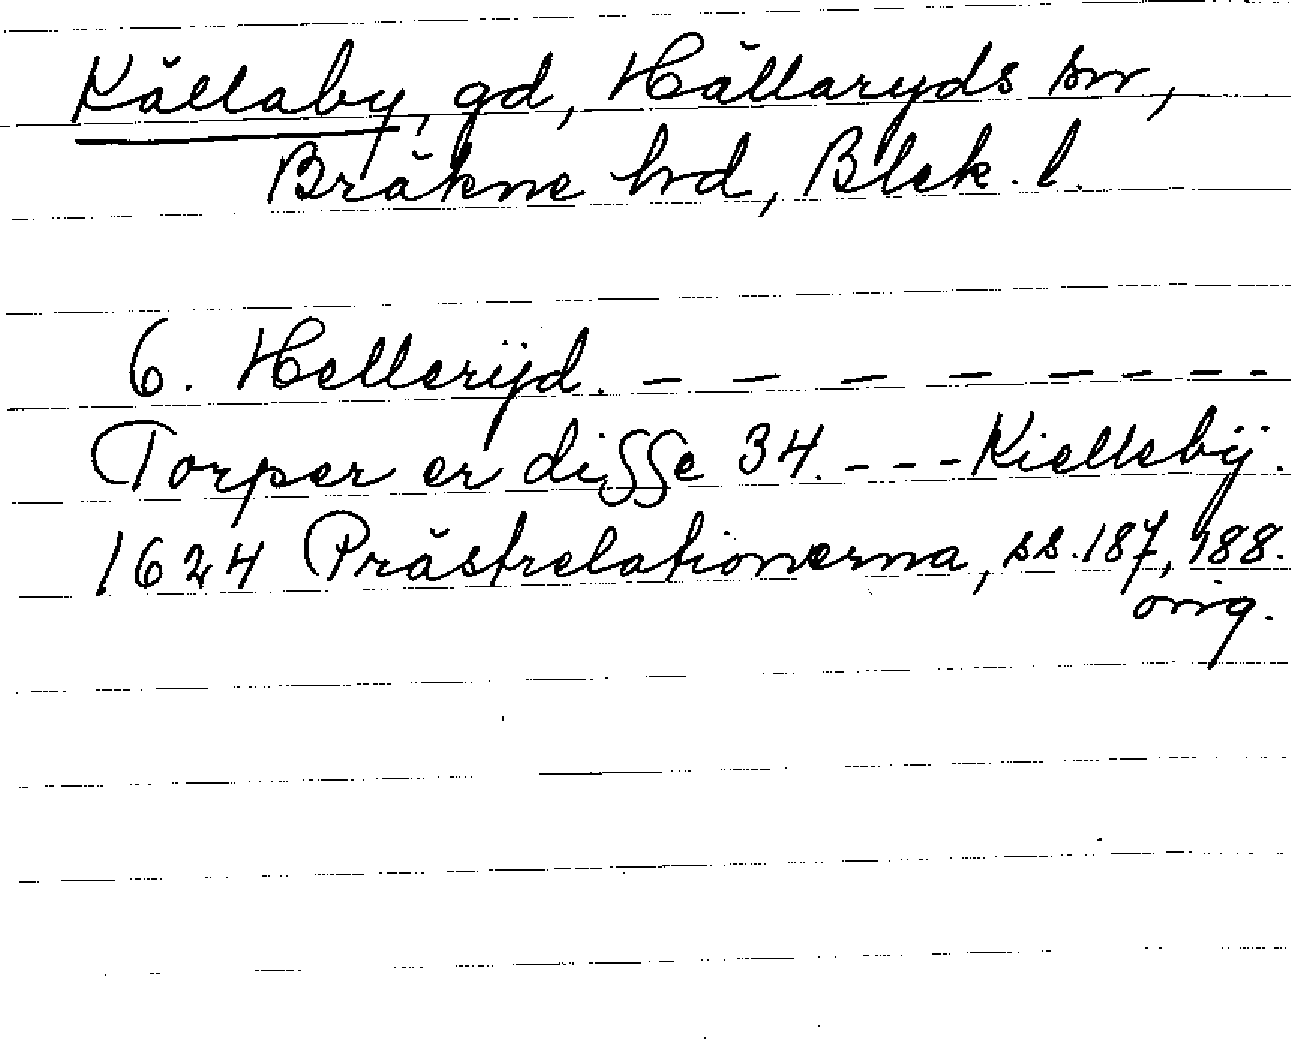 Källaby, gd, Hällaryds sn,
Bräkne hd, Blek. l.
6. Hellerÿd. — — — — — - - -
Torper er disse 34. - - - Kiellebÿ.
1624 Prästrelationerna, ss. 187, 188.
orig.